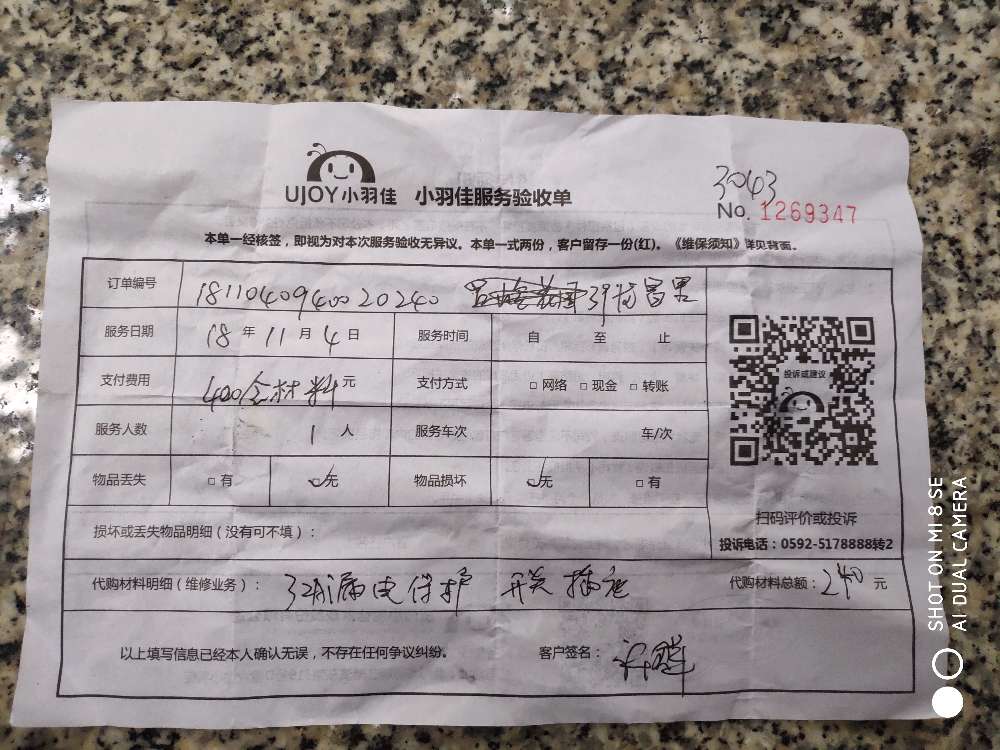 3043
UJOY小羽佳 小羽佳服务验收单
No. 1269347
本单一经核签，即视为对本次服务验收无异议。本单一式两份，客户留存一份(红)。《维保须知》详见背面。
订单编号 1811040940020240
服务日期 18 年 11 月 4 日 服务时间 自 至 止
支付费用 400含材料元 支付方式 □ 网络 □ 现金 □ 转账
投诉或建议
服务人数 1 人 服务车次 车/次
物品丢失 □ 有 □ 无 物品损坏 □ 无 □ 有
扫码评价或投诉
损坏或丢失物品明细（没有可不填）：
投诉电话：0592-5178888转2
代购材料明细（维修业务）： 32A漏电保护 开关 插座 代购材料总额：240 元
以上填写信息已经本人确认无误，不存在任何争议纠纷。 客户签名：
SHOT ON MI 8 SE
AI DUAL CAMERA